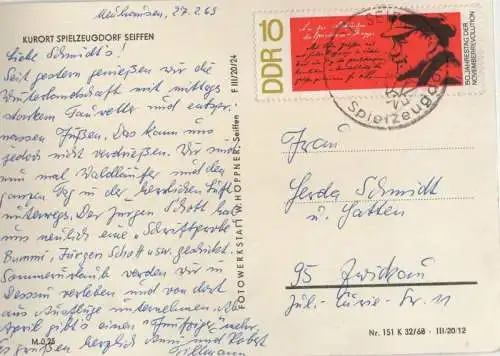 Neuhausen, 27.2.69
KURORT SPIELZEUGDORF SEIFFEN
Liebe Schmidt's!
Seit gestern genießen wir die
Winterlandschaft mit mittags
starkem Tauwetter und entspr.
nassen Füßen. Das kann uns
jedoch nicht verdrießen. Wir sind
nun mal Waldläufer und den
ganzen Tag in der herrlichen Luft
unterwegs. Der Jürgen Schott hat
uns neulich eine "Schriftprobe"
Bummi, Jürgen Schott usw. geschickt.
Sommerurlaub werden wir in
Dessau verleben und von dort
aus Ausflüge unternehmen. Ab
April gibt's einen mehr.
Es grüßen herzlich Anni und Robert
Tillmann
M 0,25
FOTOWERKSTATT W. HÖPPNER, Seiffen F III/20/24
DDR 10
50. JAHRESTAG DER
NOVEMBERREVOLUTION
Spielzeugdorf
Frau
Gerda Schmidt
u. Gatten
95 Zwickau
Jul.-Curie-Str. 11
Nr. 151 K 32/68 · III/20/12